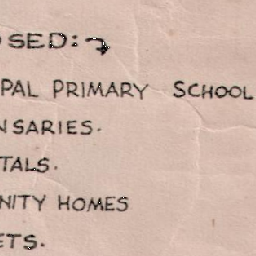 OSED:
PAL PRIMARY SCHOOL
NSARIES.
TALS.
NITY HOMES
ETS.